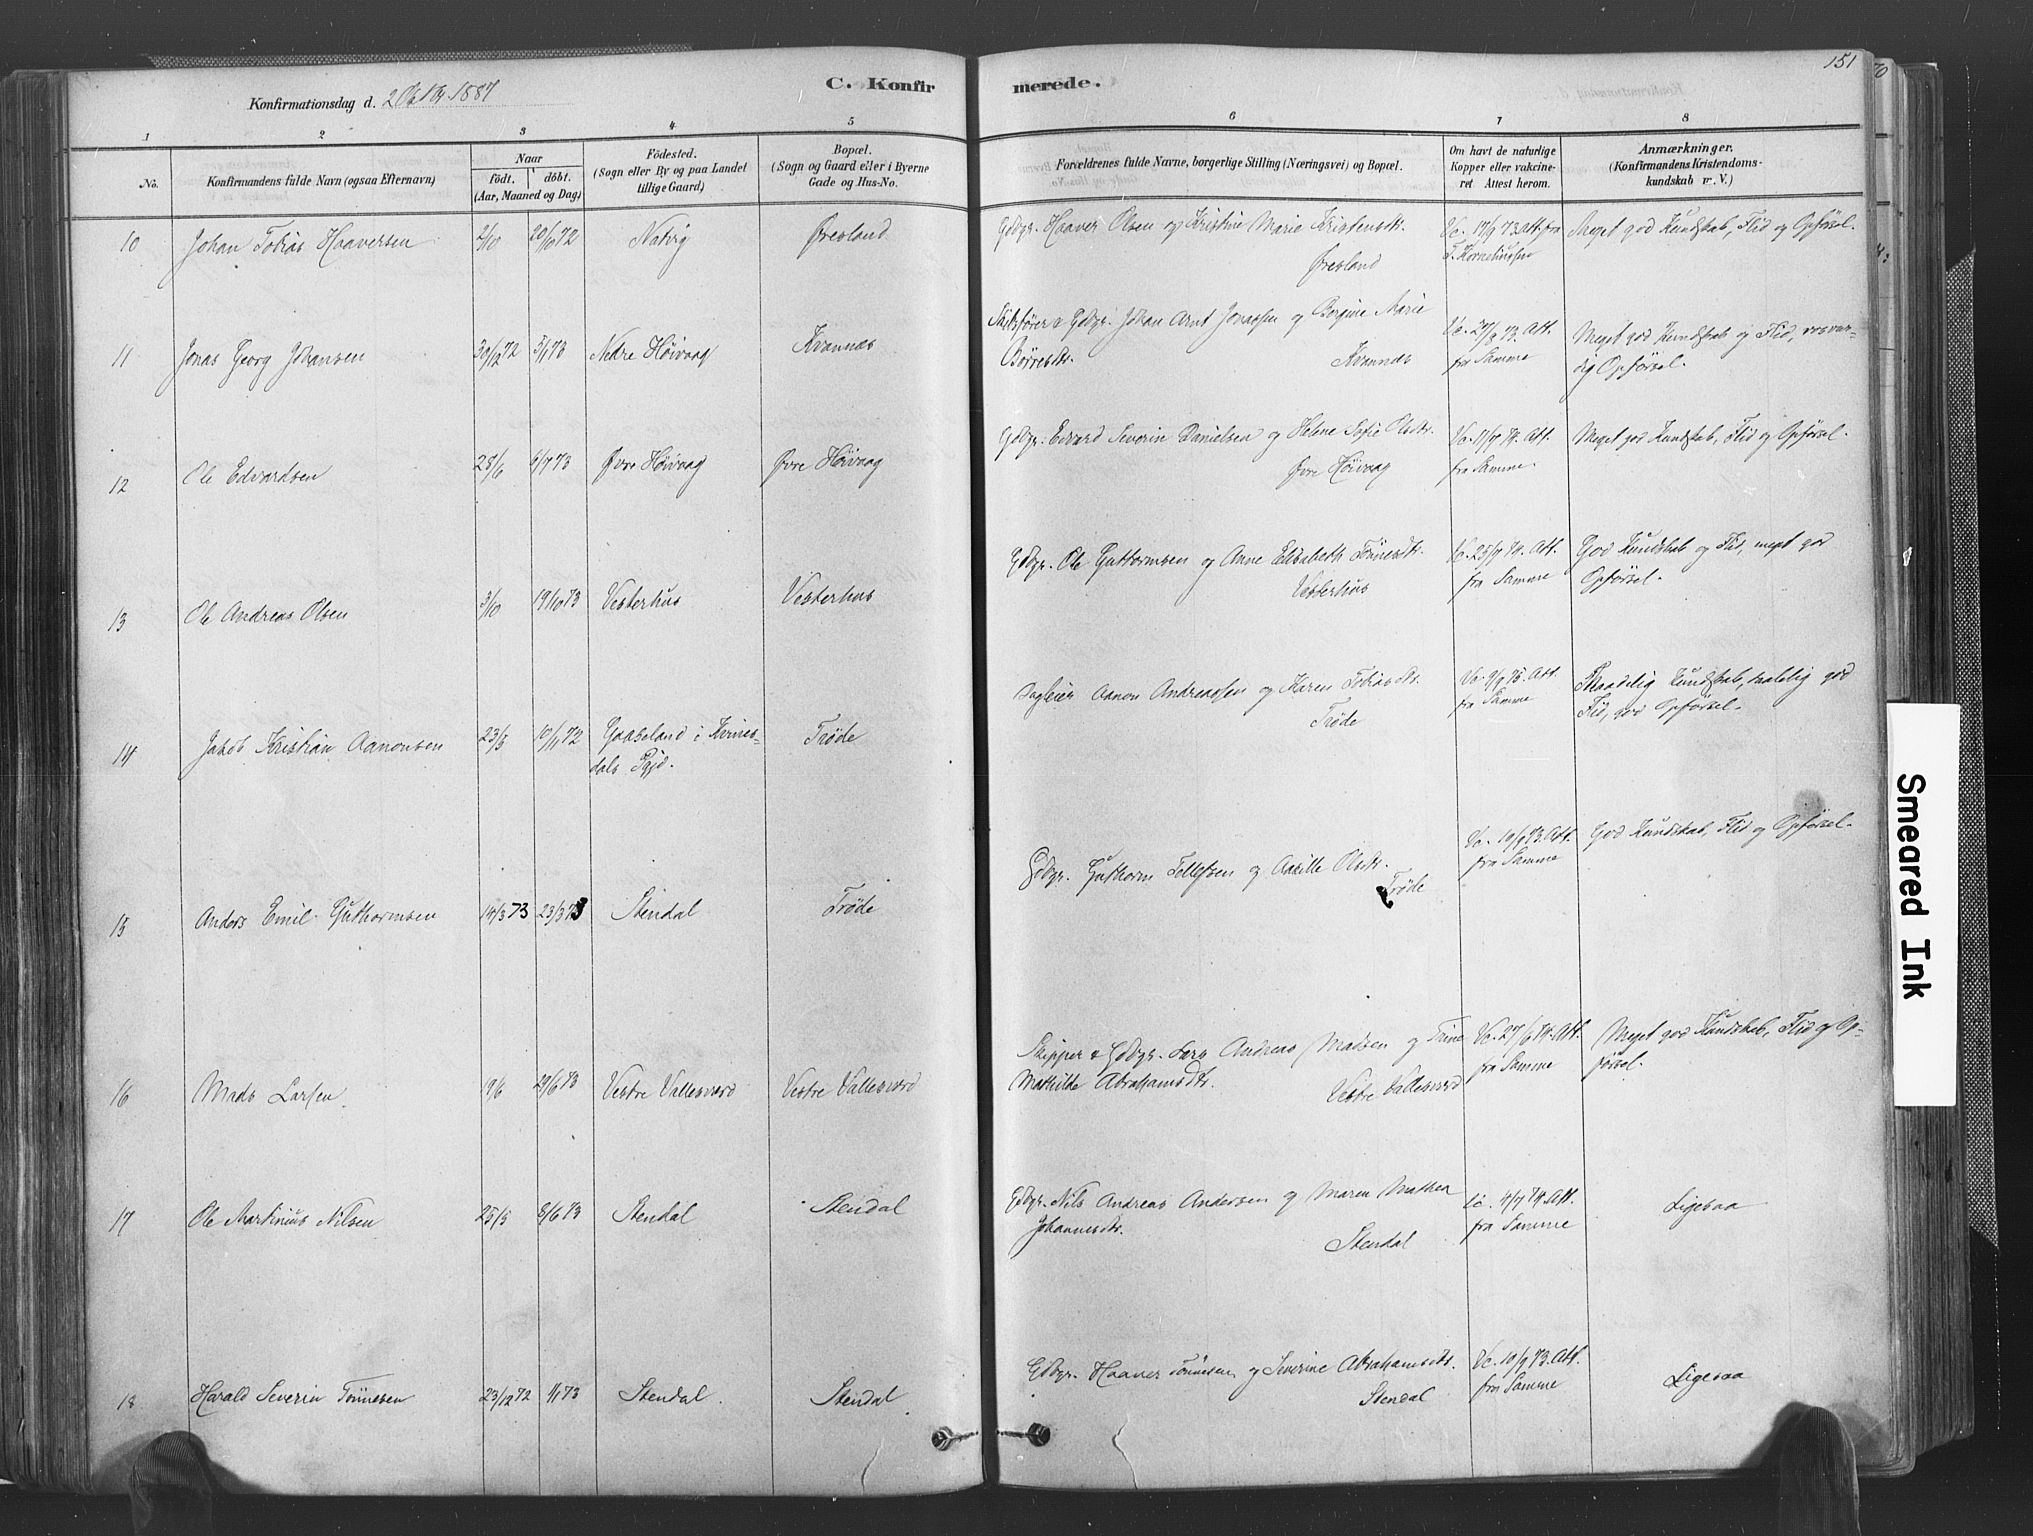 151
Konfirmationsdag d. 2 Oktbr. 1887
C. Konfir
merede.
1 2 3 4 5 6 7 8
No.
Konfirmandens fulde Navn (ogsaa Efternavn)
Naar
födt. döbt.
(Aar, Maaned og Dag)
Födested.
(Sogn eller By og paa Landet
tillige Gaard)
Bopæl.
(Sogn og Gaard eller i Byerne
Gade og Hus-No.
Forældrenes fulde Navne, borgerlige Stilling (Næringsvei) og Bopæl.
Om havt de naturlige
Kopper eller vakcine-
ret Attest herom.
Anmærkninger.
(Konfirmandens Kristendoms-
kundskab o: V.)
10 Johan Tobias Haaversen 2/10 20/10 72 Natvig Øresland
Gdbgr. Haaver Olsen og Kristine Marie Kristensdtr.
Øresland
Vc. 17/9 73 Att. fra
T. Korneliussen
Meget god Kundskab, Flid og Opførsel.
11 Jonas Georg Johansen 30/12 72 5/1 73 Nedre Höivaag Kvannes
Skibsfører & Gdbgr. Johan Arnt Jonassen og Bergine Marie
Börresdtr. Kvannes
Vc. 27/8 73. Att.
fra Samme
Meget god Kundskab og Flid, rosvær-
dig Opførsel.
12 Ole Edvardsen 28/6 6/7 73 Øvre Höivaag Øvre Höivaag
Gdbgr. Edvard Severin Danielsen og Helene Sofie Olsdtr.
Øvre Höivaag
Vc. 11/7 74. Att.
fra Samme.
Meget god Kundskab, Flid og Opførsel.
13 Ole Andreas Olsen 3/10 19/10 73 Vesterhus Vesterhus
Gdbgr. Ole Guttormsen og Anne Elisabeth Tönnesdtr.
Vesterhus
Vc. 25/9 74. Att.
fra Samme
God Kundskab og Flid, meget god
Opförsel.
14 Jakob Kristian Aanonsen 23/5 10/11 72 Gaaseland i Kvines-
dals Pgjd. Tröde
Dagleier Aanon Andreassen og Karen Tobiasdtr.
Tröde
Vc. 9/9 75. Att.
fra Samme
Maadelig Kundskab, nalelig god
Flid, god Opförsel.
15 Anders Emil Guthormsen 14/3 73 23/3 73 Stendal Tröde
Gdbgr. Guthorm Tellefsen og Aasille Olsdtr.
Tröde
Vc. 10/9 73. Att.
fra Samme
God Kundskab, Flid og Opförsel.
16 Mads Larsen 9/6 29/6 73 Vestre Vallesværd Vestre Vallesværd
Skipper & Gdbgr. Lars Andreas Madsen og Trine
Mathilde Abrahamsdtr. Vestre Vallesværd
Vc. 27/6 74. Att.
fra Samme
Meget god Kundskab, Flid og Op-
försel.
17 Ole Martinius Nilsen 25/5 8/6 73 Stendal Stendal
Gdbgr. Nils Andreas Andersen og Maren Mathea
Johannesdtr. Stendal
Vc. 4/7 74. Att.
fra Samme
Ligesaa
18 Harald Severin Tönnesen 23/12 72 1/1 73 Stendal Stendal
Gdbgr. Haaver Tönnesen og Severine Abrahamsdtr.
Stendal
Vc. 10/9 73. Att.
fra Samme
Ligesaa
Smeared Ink